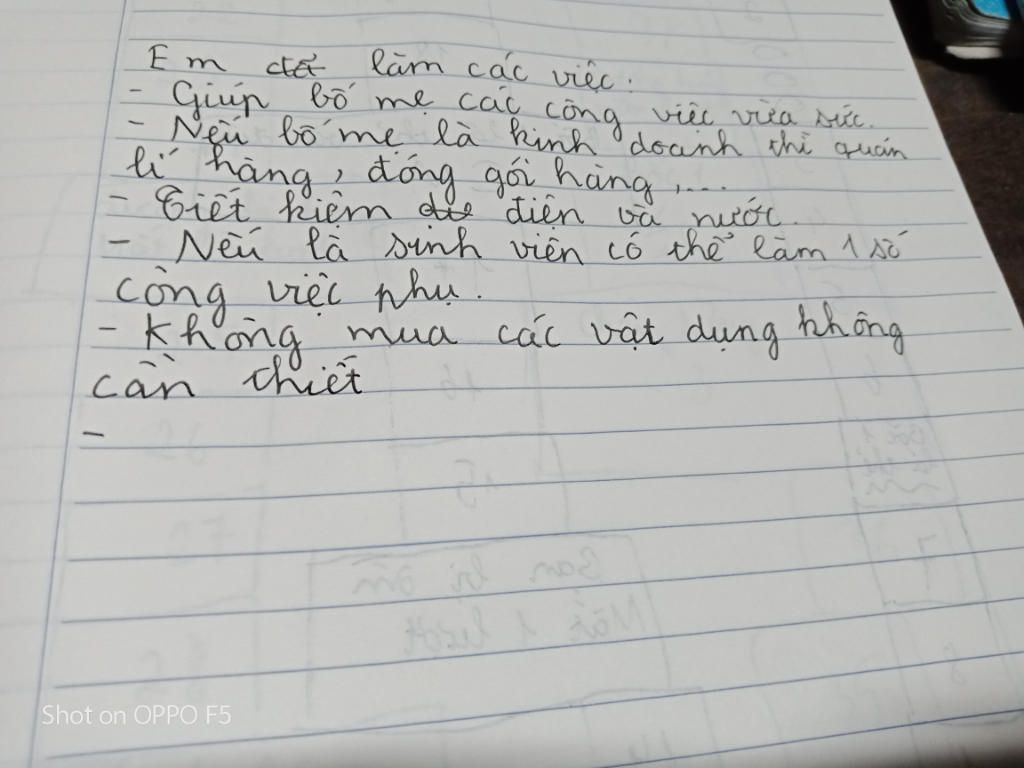 Em làm các việc:
- Giúp bố mẹ các công việc vừa sức.
- Nếu bố mẹ là kinh doanh thì quán
lí hàng, đóng gói hàng,...
- Tiết kiệm điện và nước.
- Nếu là sinh viên có thể làm 1 số
công việc phụ.
- Không mua các vật dụng không
cần thiết
-
Shot on OPPO F5